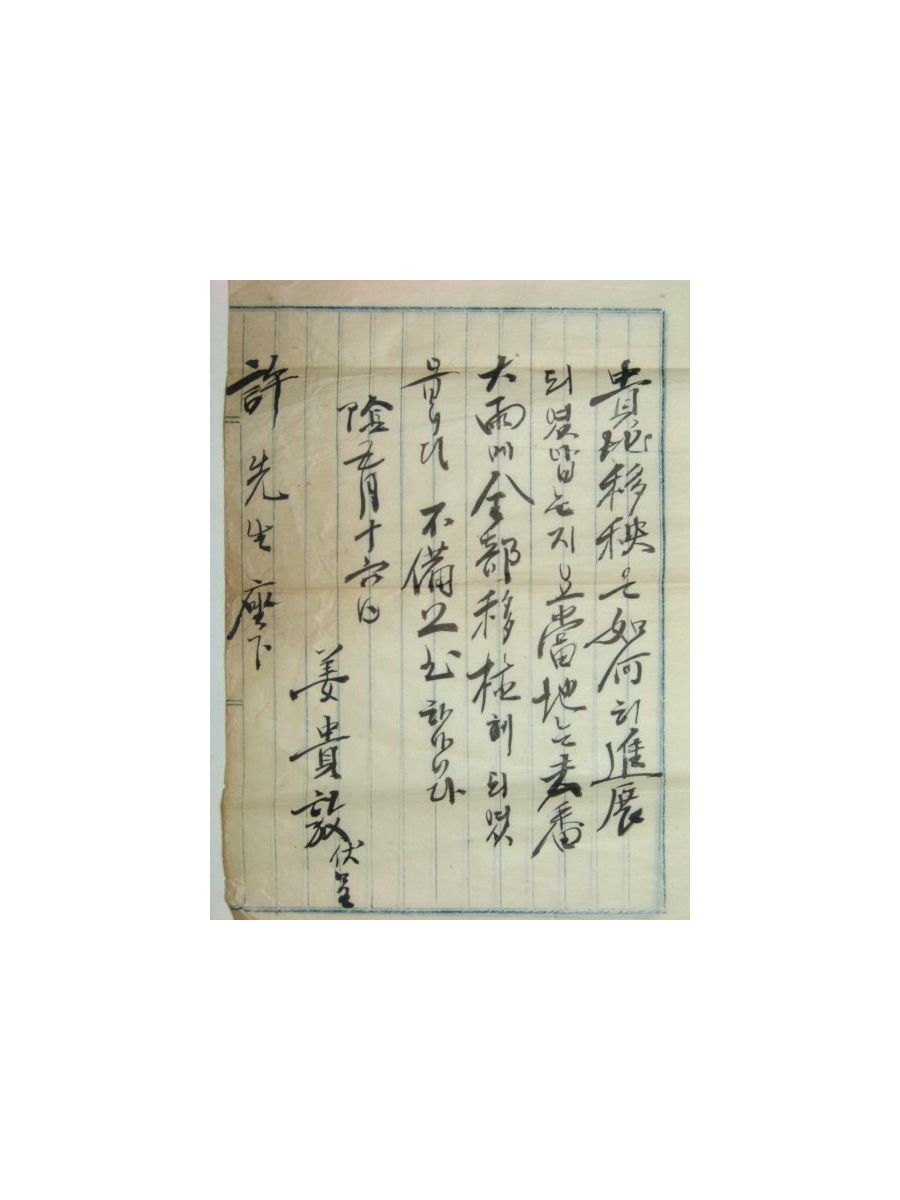 貴地移秧은 如何히 進展
되엿는지요 當地는 去番
大雨에 全部移植히 되엿
읍니다 不備上书하나이다
陰五月十六日
姜貴敦 伏呈
許 先生 座下